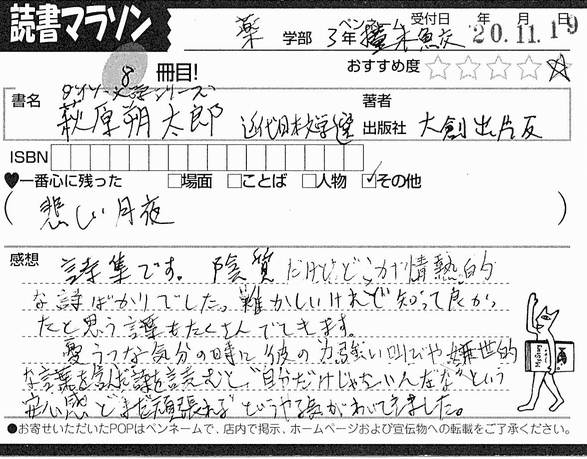 読書マラソン
薬 学部 3年 ペンネーム 魚交 受付日 年 月 日 20.11.19
8 冊目!
おすすめ度 ☆☆☆☆☆
書名 ダイソー文学シリーズ 著者
萩原朔太郎 近代日本文学選 出版社 大創出版
ISBN
♥一番心に残った □場面 □ことば □人物 ☑その他
( 悲しい月夜 )
感想 詩集です。陰質だけどどこか情熱的
な詩ばかりでした。難かしいけれど知って良かっ
たと思う言葉もたくさんでてきます。
憂うつな気分の時に彼の力強い叫びや嫌世的
な言葉を含んだ詩を読むと、"自分だけじゃないんだな"という
安心感と"まだ頑張れる"というやる気がわいてきました。
●お寄せいただいたPOPはペンネームで、店内で掲示、ホームページおよび宣伝物への転載をご了承ください。